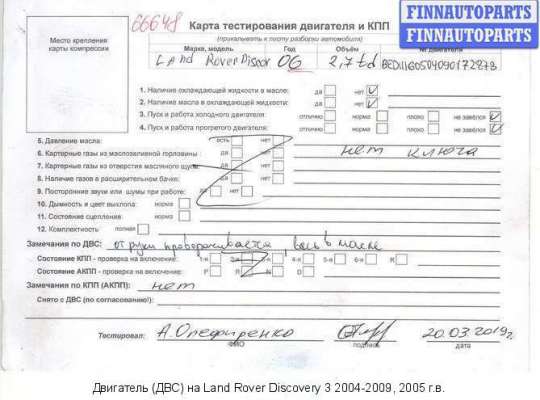 FINNAUTOPARTS
FINNAUTOPARTS
66648
Карта тестирования двигателя и КПП
(прикалывать к листу разборки автомобиля)
Место крепления
карты компрессии
Марка, модель Год Объём № двигателя
Land Rover Discor 06 2,7 td
1. Наличие охлаждающей жидкости в масле: да нет
2. Наличие масла в охлаждающей жидкости: да нет
3. Пуск и работа холодного двигателя отлично норма плохо не завёлся
4. Пуск и работа прогретого двигателя: отлично норма плохо не завёлся
5. Давление масла: есть нет
6. Картерные газы из маслозаливной горловины: да нет нет ключа
7. Картерные газы из отверстия масляного щупа: да нет
8. Наличие газов в расширительном бачке: да нет
9. Посторонние звуки или шумы при работе: да нет
10. Дымность и цвет выхлопа: норма
11. Состояние сцепления: норма
12. Комплектность: полная
Замечания по ДВС: от руки проворачивается, весь в масле
Состояние КПП - проверка на включение: 1-я 2-я 3-я 4-я 5-я 6-я R
Состояние АКПП - проверка на включение: P R N D
Замечания по КПП (АКПП): нет
Снято с ДВС (по согласованию!):
Тестировал: А. 20.03.2019г.
ФИО подпись дата
Двигатель (ДВС) на Land Rover Discovery 3 2004-2009, 2005 г.в.